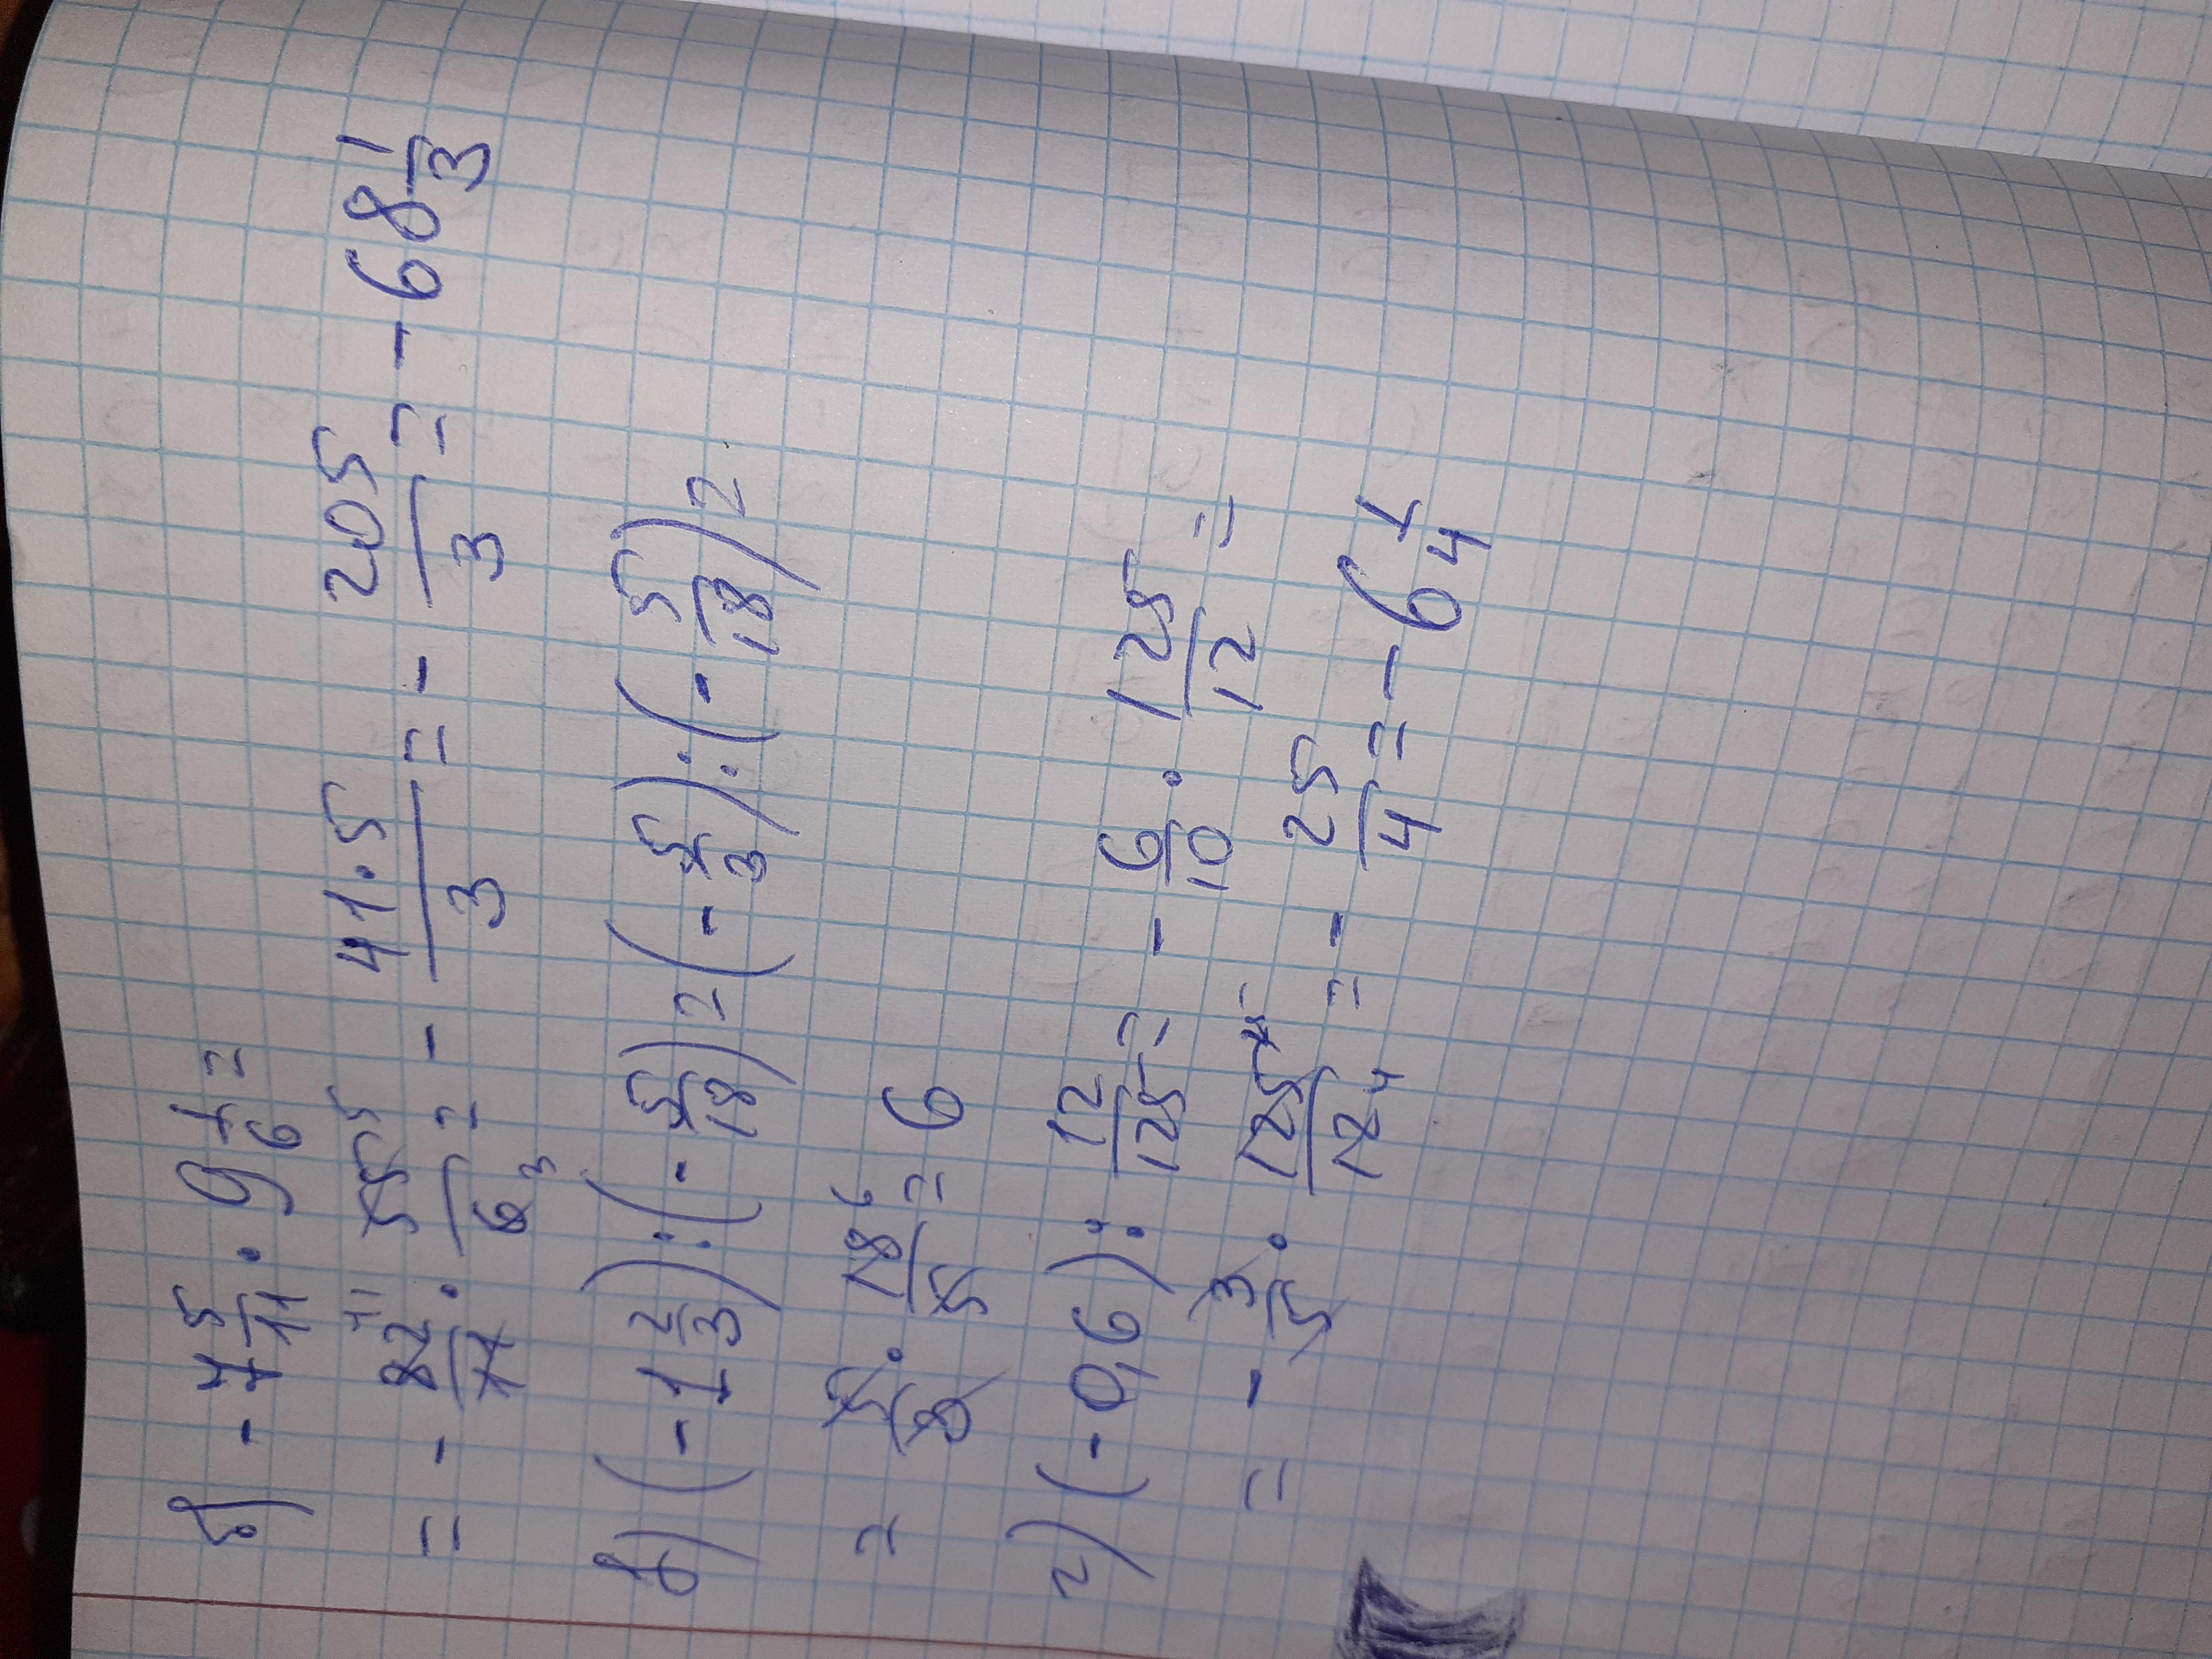 б) - 7 5/11 · 9 1/6 =
= - 82/11 · 55/6 = - 41·5/3 = - 205/3 = - 68 1/3
в) (-1 2/3) : (- 5/18) = (- 5/3) : (- 5/18) =
= 5/3 · 18/5 = 6
г) (-0,6) : 12/125 = - 6/10 · 125/12 =
= - 3/5 · 125/12 = - 25/4 = - 6 1/4